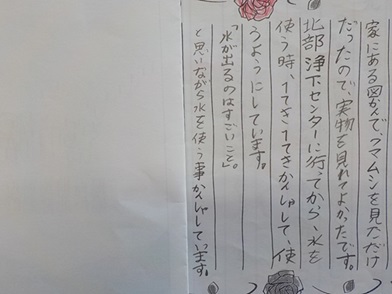 家にある図かんでクマムシを見ただけ
だったので、実物を見れてよかったです。
北部浄下センターに行ってから、水を
使う時、1てき1てきかんしゃして、使
うようにしています。
「水が出るのはすごいこと」。
と思いながら水を使う事かんしゃしています。